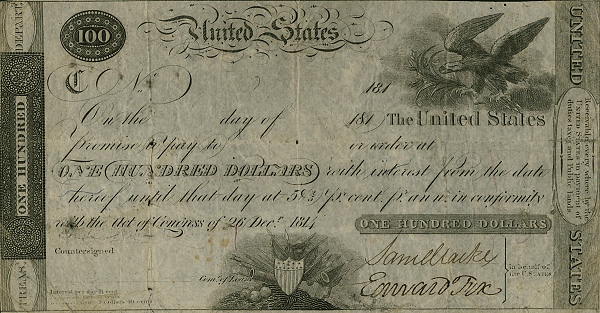 DEPART.
100
United States
C No.
181
On the day of 181 The United States
promise to pay to or order at
ONE HUNDRED DOLLARS with interest from the date
thereof until that day at
per cent. pr. ann. in conformity
with the Act of Congress of 26 Decr. 1814
ONE HUNDRED DOLLARS
Countersigned
Comr. of Loans
Edward Fox
in behalf of
the U.STATES
Interest per day
ONE HUNDRED
TREAS.
UNITED
Receivable every where by the
UNITED STATES in payment of
duties taxes and public
lands
STATES